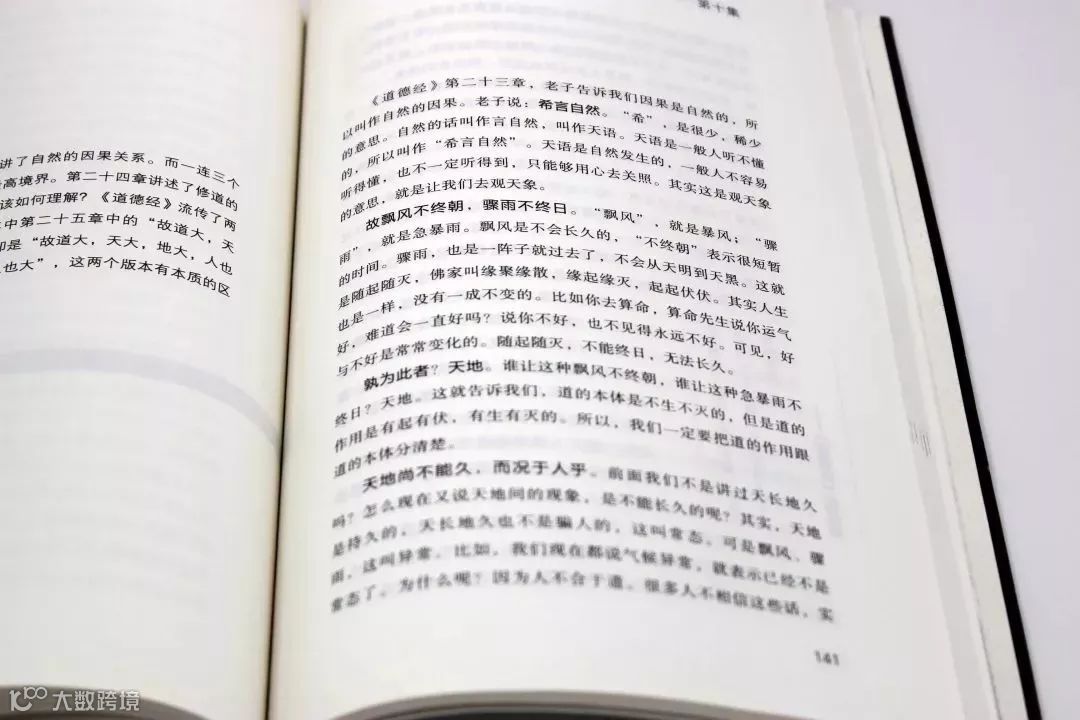 讲了自然的因果关系。而一连三个
高境界。第二十四章讲述了修道的
该如何理解？《道德经》流传了两
中第二十五章中的“故道大，天
是“故道大，天大，地大，人也
也大”，这两个版本有本质的区
第十集
《道德经》第二十三章，老子告诉我们因果是自然的，所
以叫作自然的因果。老子说：希言自然。“希”，是很少，稀少
的意思。自然的话叫作言自然，叫作天语。天语是一般人听不懂
的，所以叫作“希言自然”。天语是自然发生的，一般人不容易
听得懂，也不一定听得到，只能够用心去关照。其实这是观天象
的意思，就是让我们去观天象。
故飘风不终朝，骤雨不终日。“飘风”，就是暴风；“骤
雨”，就是急暴雨。飘风是不会长久的，“不终朝”表示很短暂
的时间。骤雨，也是一阵子就过去了，不会从天明到天黑。这就
是随起随灭，佛家叫缘聚缘散，缘起缘灭，起起伏伏。其实人生
也是一样，没有一成不变的。比如你去算命，算命先生说你运气
好，难道会一直好吗？说你不好，也不见得永远不好。可见，好
与不好是常常变化的。随起随灭，不能终日，无法长久。
孰为此者？天地。谁让这种飘风不终朝，谁让这种急暴雨不
终日？天地。这就告诉我们，道的本体是不生不灭的，但是道的
作用是有起有伏，有生有灭的。所以，我们一定要把道的作用跟
道的本体分清楚。
天地尚不能久，而况于人乎。前面我们不是讲过天长地久
吗？怎么现在又说天地间的现象，是不能长久的呢？其实，天地
是持久的，天长地久也不是骗人的，这叫常态。可是飘风、骤
雨，这叫异常。比如，我们现在都说气候异常，就表示已经不是
常态了。为什么呢？因为人不合于道。很多人不相信这些话，实
141
大数跨境